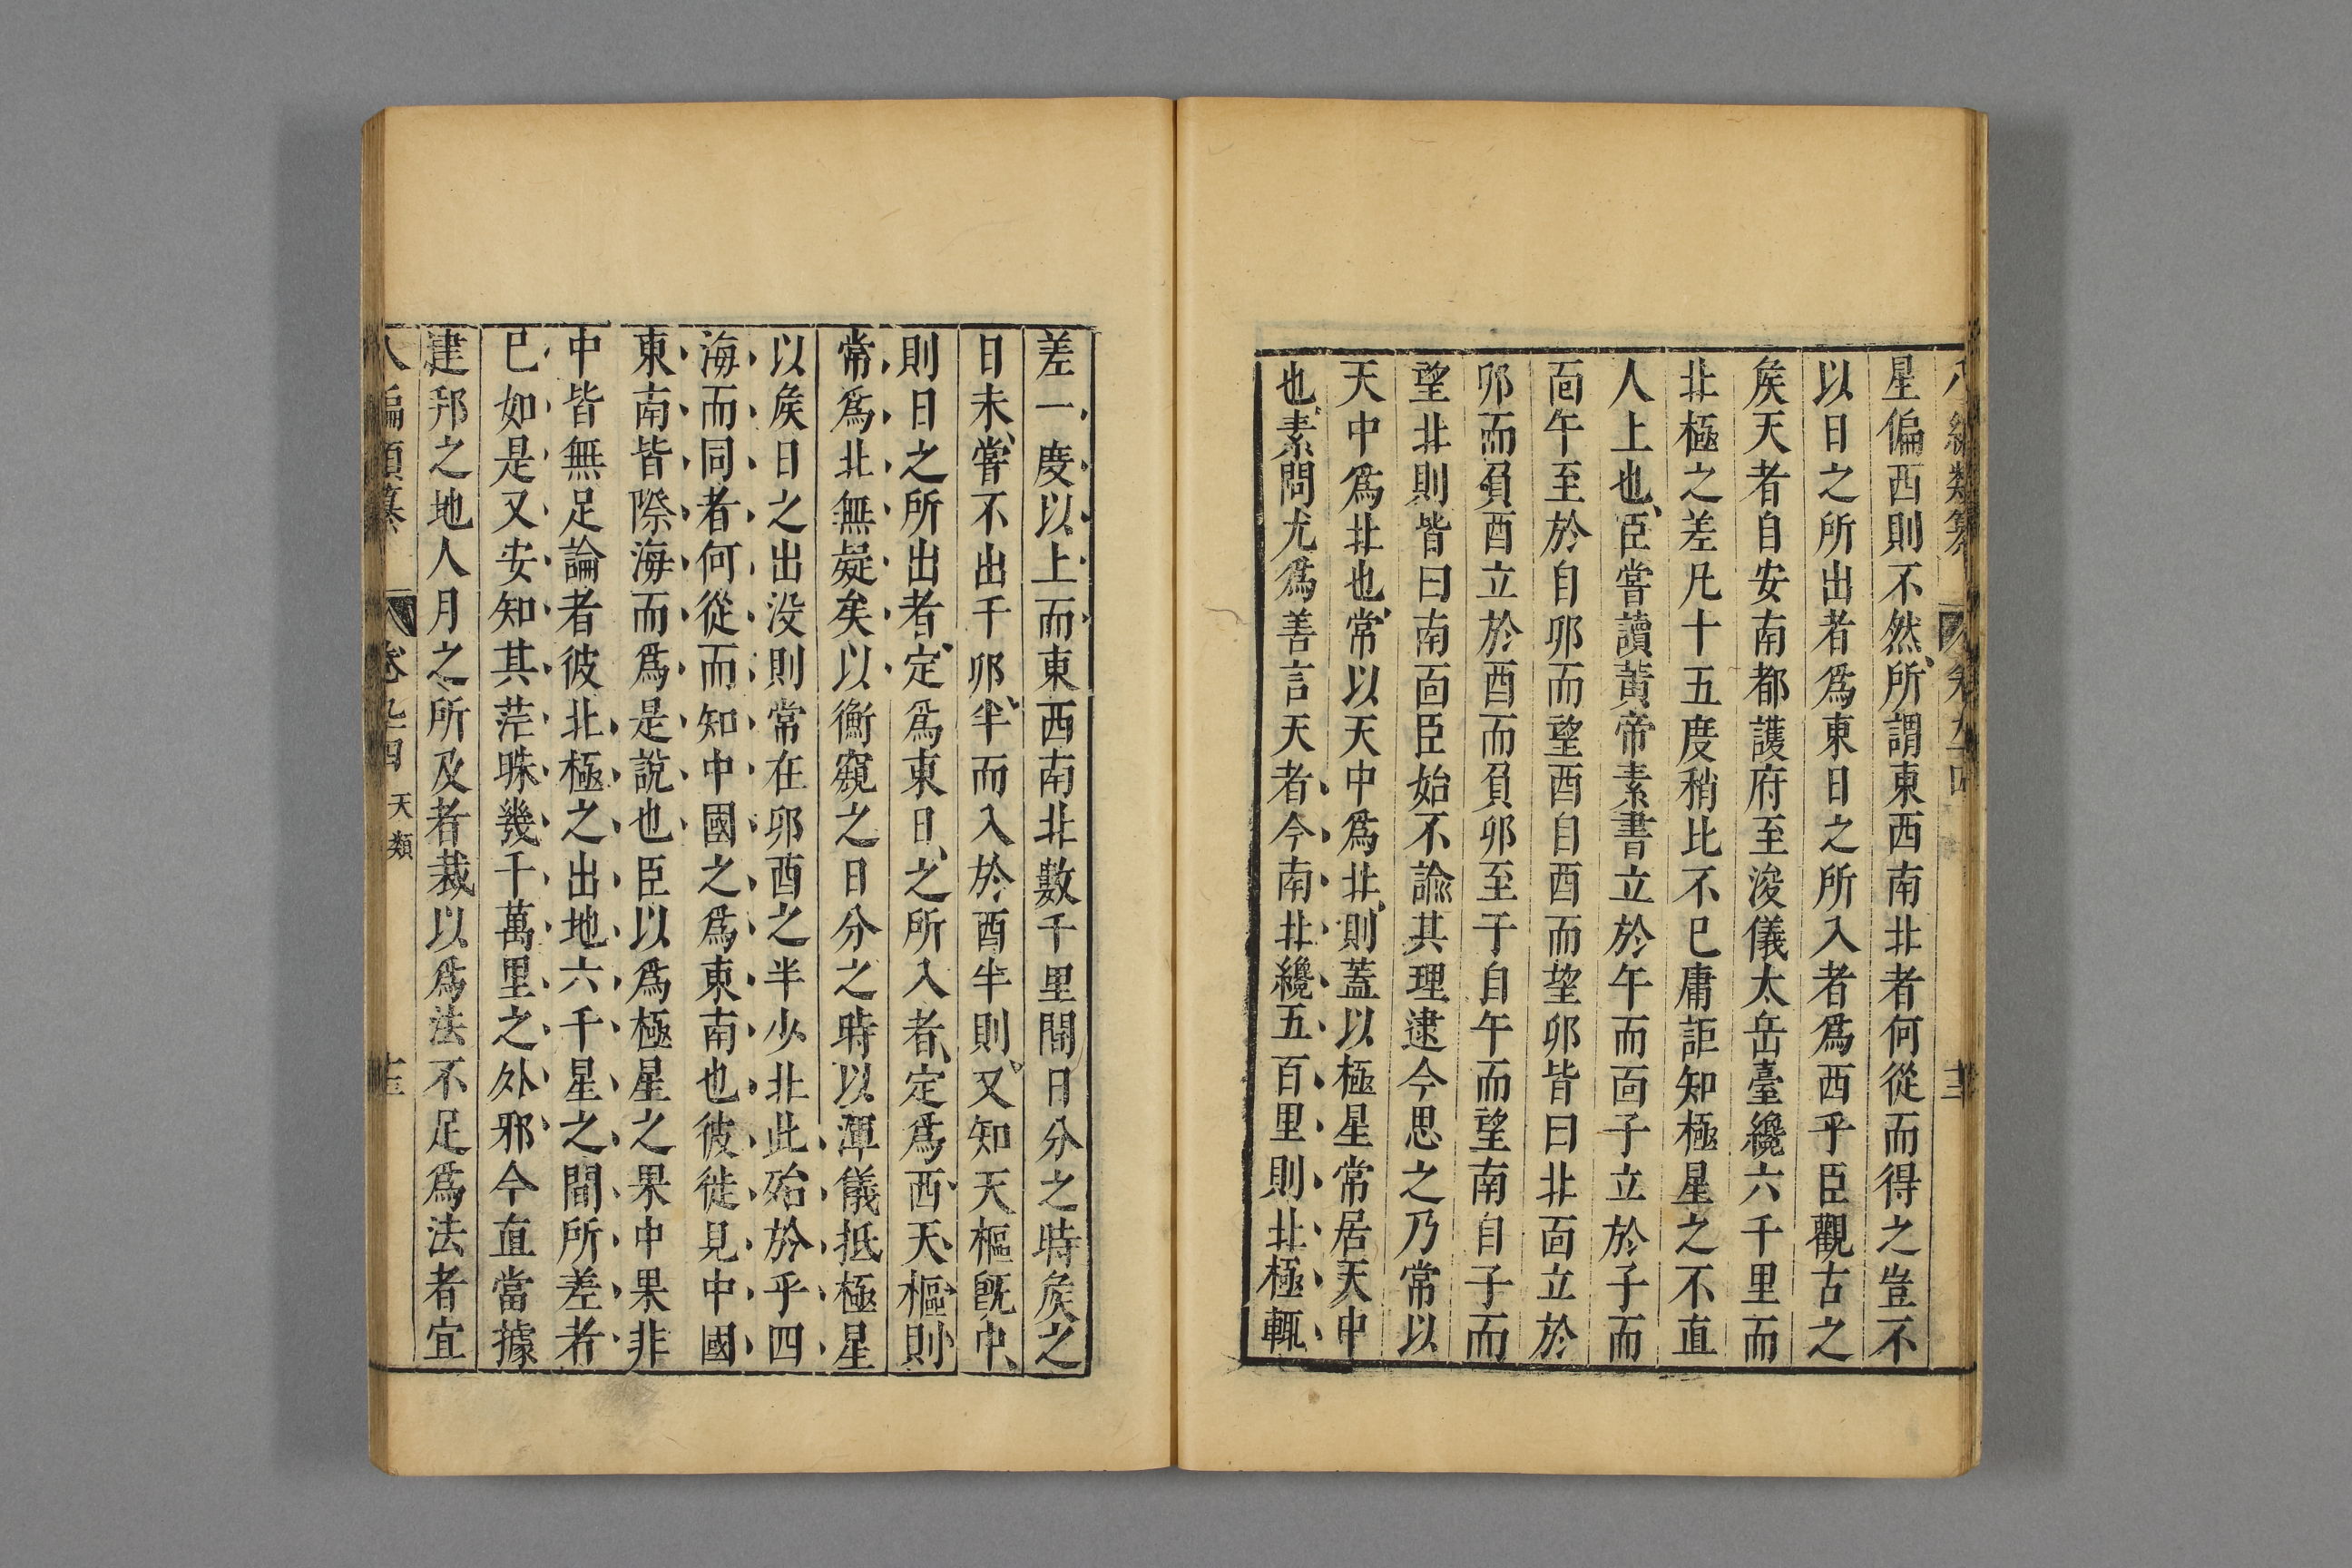 星偏西則不然所謂東西南北者何從而得之豈不
以日之所出者爲東日之所入者爲西乎臣觀古之
矦天者自安南都護府至浚儀太岳臺纔六千里而
北極之差凡十五度稍比不已庸詎知極星之不直
人上也臣嘗讀黃帝素書立於午而面子立於子而
面午至於自卯而望酉自酉而望卯皆曰北面立於
卯而負酉立於酉而負卯至于自午而望南自子而
望北則皆曰南面臣始不諭其理逮今思之乃常以
天中爲北也常以天中爲北則蓋以極星常居天中
也素問尤爲善言天者今南北纔五百里則北極輒
差一度以上而東西南北數千里間日分之時矦之
日未嘗不出于卯半而入於酉半則又知天樞旣中
則日之所出者定爲東日之所入者定爲西天樞則
常爲北無疑矣以衡窺之日分之時以渾儀抵極星
以矦日之出沒則常在卯酉之半少北此殆於乎四
海而同者何從而知中國之爲東南也彼徙見中國
東南皆際海而爲是說也臣以爲極星之果中果非
中皆無足論者彼北極之出地六千星之間所差者
已如是又安知其茫昧幾千萬里之外邪今直當據
建邦之地人月之所及者裁以爲法不足爲法者宜
八編類纂 卷九十四 天類 十三